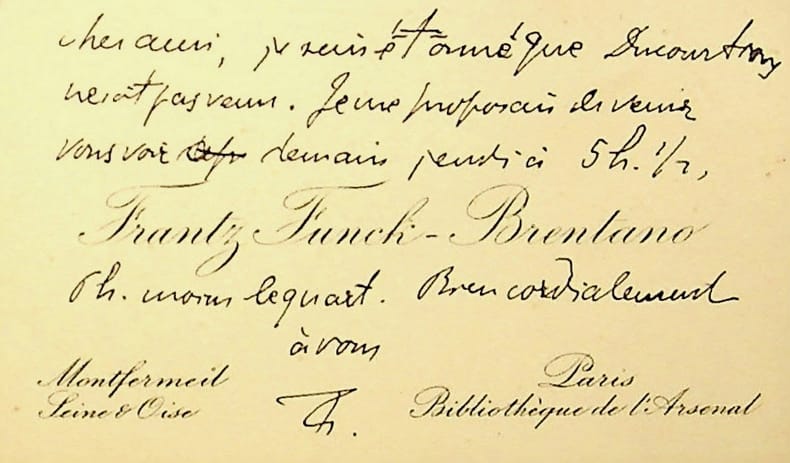 cher ami, je suis étonné que
ne soit pas venu. Je me proposais de venir
vous voir demain jeudi à 5h. 1/2,
Frantz Funck-Brentano
6h. moins le quart. Bien cordialement
à vous
Montfermeil
Seine & Oise
Paris
Bibliothèque de l'Arsenal